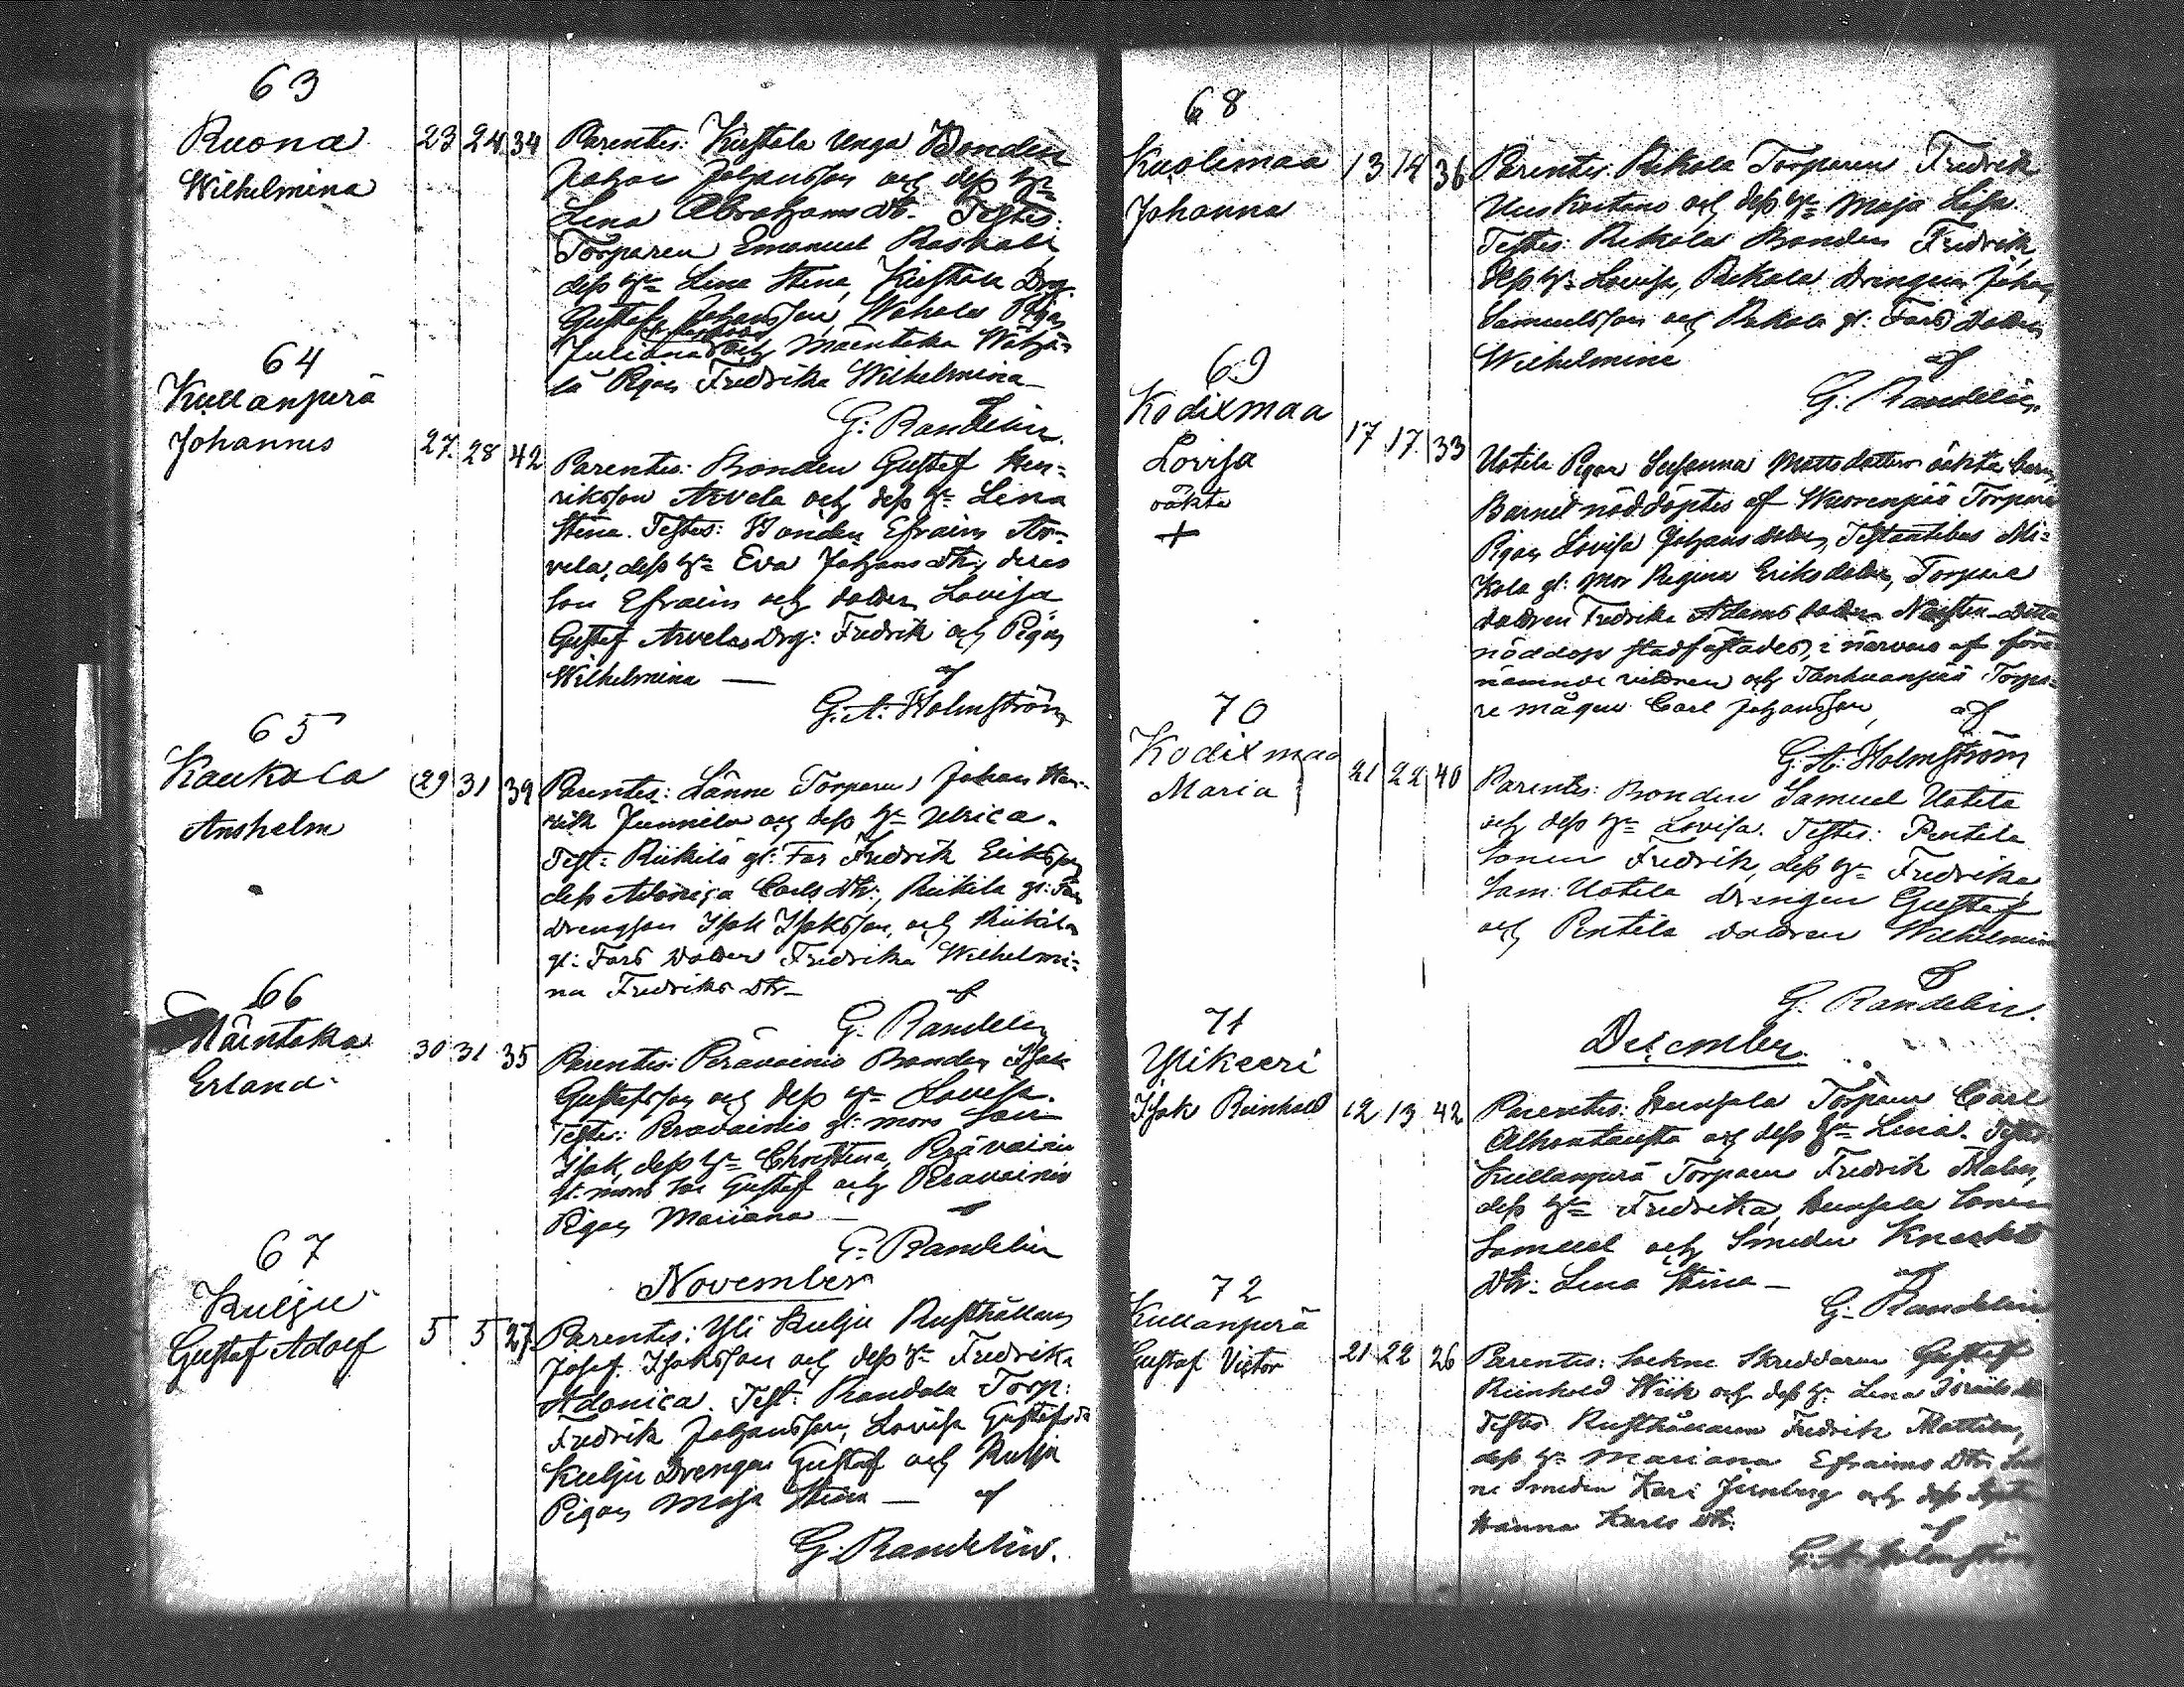 63
Ruona
Wilhelmina
23 24 34
Parentes: Kustela Unga Bonden
Johan Johansson och dess H:u
Lena Abrahams dtr. Testes:
Torparen Emanuel
dess H:u Lena Stina, Drg.
Gustaf Johansson, Pigan
Juliana och Mäentaka
lä Pigan Fredrika Wilhelmina
G. Randelin.
64
Kullanperä
Johannes
27 28 42
Parentes: Bonden Gustaf Hen=
riksson Arvela och dess H:u Lena
Stina. Testes: Bonden Efraim Ar=
vela, dess H:u Eva Johans dtr, deras
Son Efraim och dotter Lovisa
Gustaf Arvelas Drg: Fredrik och Pigan
Wilhelmina — af
G. A. Holmström
65
Kaukola
Anshelm
29 31 39
Parentes: Länne Torparen Johan Hen=
rik Junnila och dess H:u Ulrica.
Test: Riikilä gl: Far Fredrik Eriksson
dess Carls dtr, Riikilä gl: Fars
drengson Isak Isaksson, och Riikilä
gl: Fars Dotter Fredrika Wilhelmi=
na Fredriks dtr — af
G. Randelin
66
Mäentaka
Erland
30 31 35
Parentes: Perävainio Bonden Isak
Gustafsson och dess H:u Lovisa.
Testes: Perävainio gl: mors Son
Isak, dess H:u Christina, Perävainio
gl: mors Son Gustaf och Perävainio
Pigan Mariana — af
G. Randelin
November
67
Kulju
Gustaf Adolf
5 5 27
Parentes: Yli Kulju Rusthållaren
Josef Isaksson och dess H:u Fredrika
Adonica. Test: Randala Torp:
Fredrik Johansson, Lovisa Gustafs dr
Kulju Drengen Gustaf och Kulju
Pigan Maja Stina — af
G. Randelin.
68
Kuolimaa
Johanna
13 14 36
Parentes: Rekola Torparen Fredrik
och dess H:u Maja Lisa.
Testes: Rekola Bonden Fredrik,
dess H:u Lovisa, Rekola drengen Johan
Samuelsson och Rekola gl: Fars dotter
Wilhelmine af
G. Randelin.
69
Kodixmaa
Lovisa
oäkta
+
17 17 33
Uotila Pigan Susanna Matts dotters oäkta barn
Barnet nöddöptes af Torpare
Pigan Lovisa Johans dotter, Testantibus Mi=
kola gl: Mor Regina Eriks dotter, Torpare
dottren Fredrika Adams dotter
nöddop stadfästades, i närvaro af före
nämnde vittnen och Torpa=
re mågen Carl Johansson, af
G. A. Holmström
70
Kodixmaa
Maria
21 22 40
Parentes: Bonden Samuel Uotila
och dess H:u Lovisa. Testes: Pentila
Sonen Fredrik, dess H:u Fredrika,
Sam: Uotila drengen Gustaf
och Pentila dottren Wilhelmina
af
G. Randelin.
December
71
Ylikeeri
Isak Reinhold
12 13 42
Parentes: Torparen Carl
och dess H:u Lena. Testes
Kullanperä Torparen Fredrik Malm,
dess H:u Fredrika, Sonen
Samuel och Smeden
Dtr: Lena Stina — af
G. Randelin
72
Kullanperä
Gustaf Victor
21 22 26
Parentes: Sockne Skreddaren Gustaf
Reinhold Wiik och dess H: Lena
Testes Rusthållaren Fredrik Mattila,
dess H:u Mariana Efraims dtr
ne Smeden och dess
Hanna Karls dtr. af
G. A. Holmström